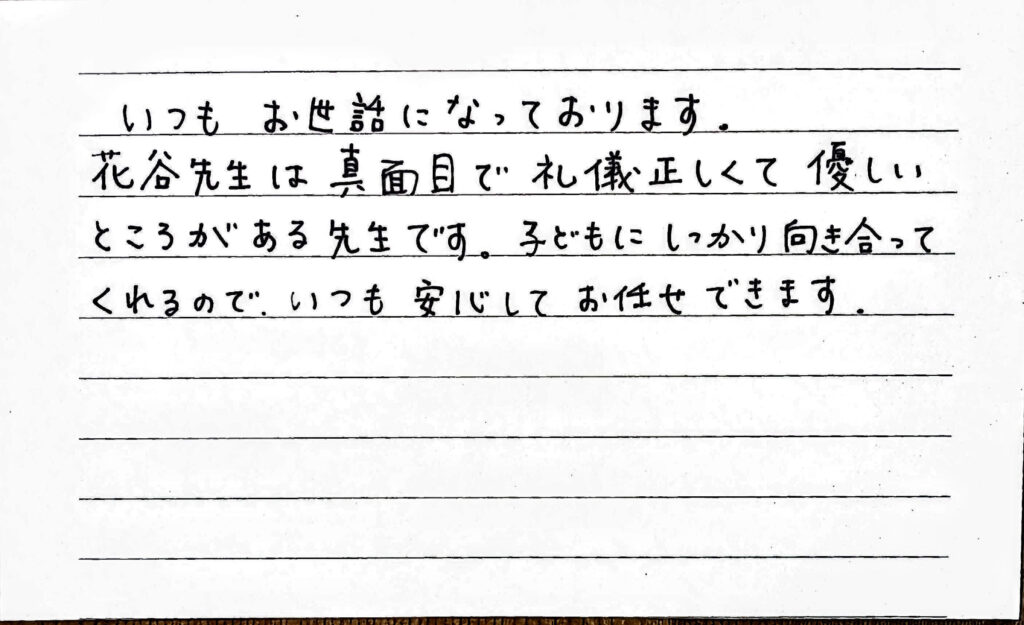 いつも お世話になっております.
花谷先生は 真面目で 礼儀正しくて 優しい
ところが ある 先生です。子どもに しっかり 向き合って
くれるので. いつも 安心して お任せ できます.